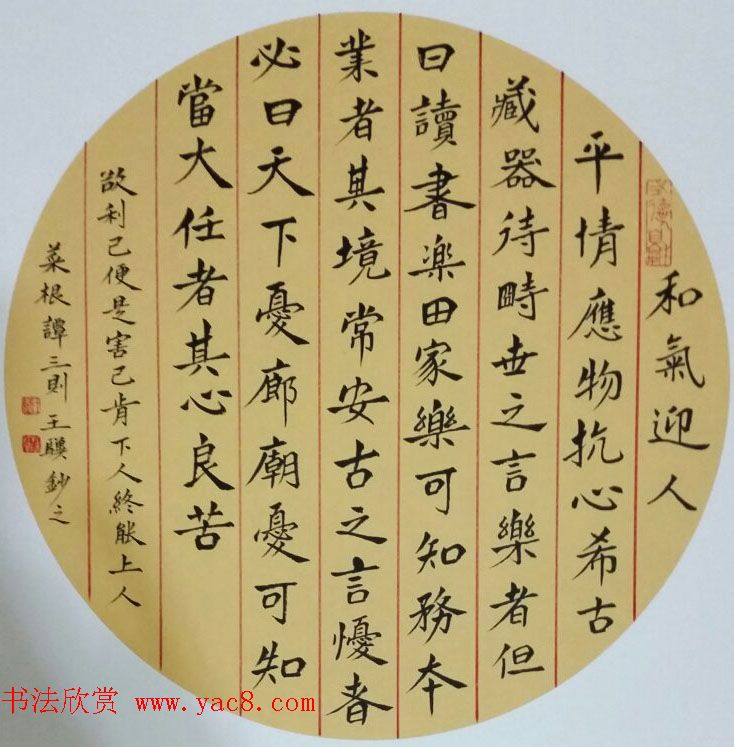 和氣迎人
平情應物抗心希古
藏器待畤世之言樂者但
曰讀書楽田家樂可知務本
業者其境常安古之言懮者
必曰天下憂廊廟憂可知
當大任者其心良苦
欲利己便是害己肯下人終能上人
菜根譚三則王鈔之
书法欣赏 www.yac8.com